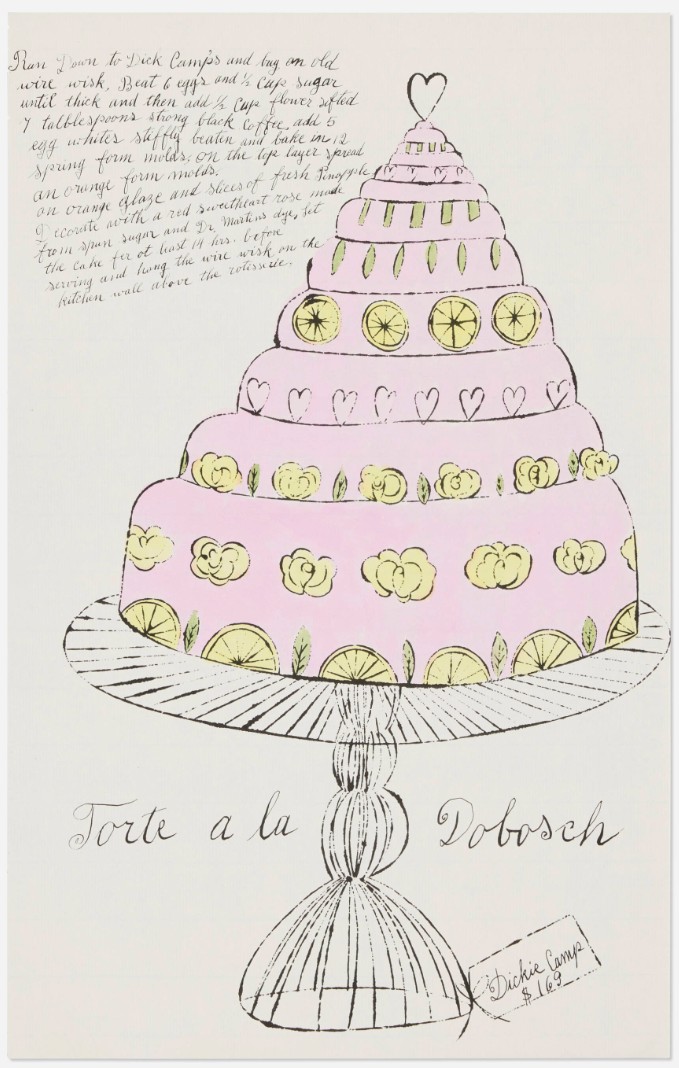 Run Down to Dick Camps and bug an old
wire wisk, Beat 6 eggs and ½ Cup sugar
until thick and then add ½ Cup flower sifted
7 tablbespoons strong black Coffee, add 5
egg whites stiffly beatin and bake in 12
spring form molds; on the top layer spread
an orange form molds.
on orange glaze and slices of fresh Pinopple
Dicorate with a red sweetheart rose made
from spun sugar and Dr. Martins dye, let
the Cake for at least 14 hrs. before
serving and hang the wire wisk on the
kitchen wall above the rotisserie.
Torte a la Dobosch
Dickie Camp
$ 169